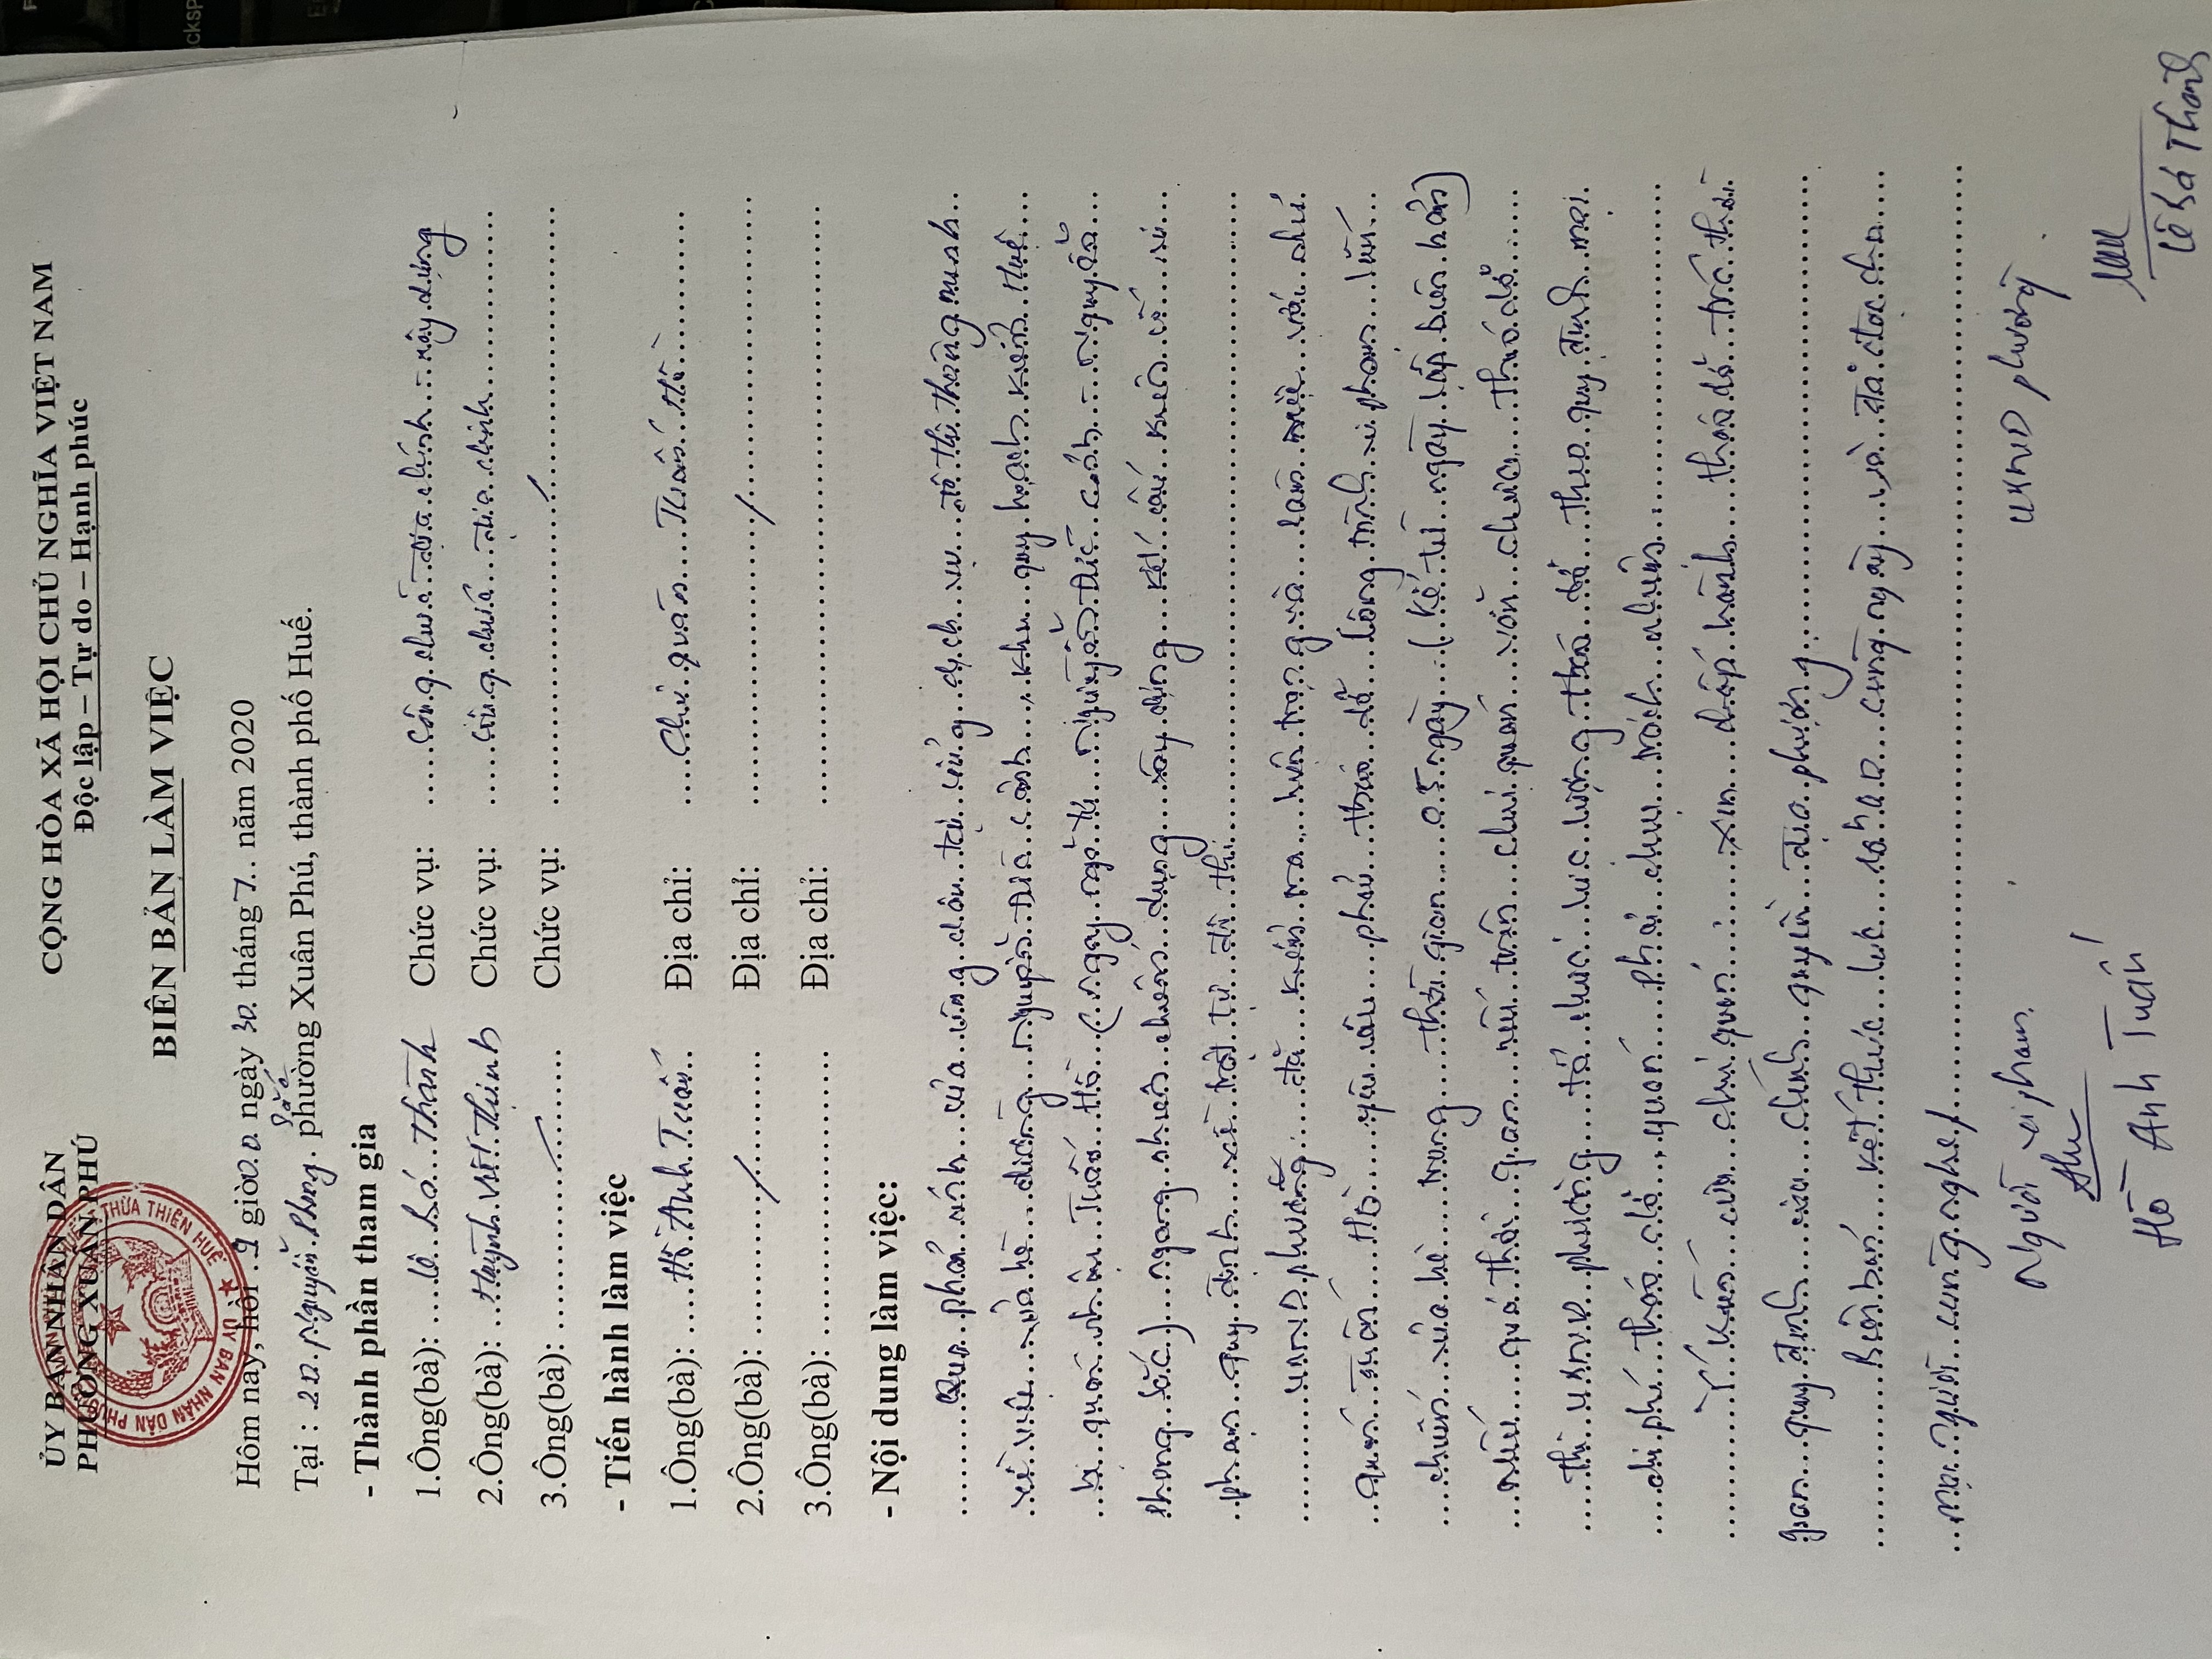 ỦY BAN NHÂN DÂN
PHƯỜNG XUÂN PHÚ
CỘNG HÒA XÃ HỘI CHỦ NGHĨA VIỆT NAM
Độc lập – Tự do – Hạnh phúc
BIÊN BẢN LÀM VIỆC
Hôm nay, hồi 9 giờ 00 ngày 30 tháng 7 năm 2020
Tại : 2D Nguyễn Phong Sắc phường Xuân Phú, thành phố Huế.
- Thành phần tham gia
1.Ông(bà): Lê Bá Thành Chức vụ: Công chức địa chính - xây dựng
2.Ông(bà): Huỳnh Viết Thịnh Chức vụ: Công chức địa chính
3.Ông(bà): Chức vụ:
- Tiến hành làm việc
1.Ông(bà): Hồ Anh Tuấn Địa chỉ: Chủ quán Tuấn Hồ
2.Ông(bà): Địa chỉ:
3.Ông(bà): Địa chỉ:
- Nội dung làm việc:
Qua phản ánh của công dân tại cổng dịch vụ đô thị thông minh
về việc vỉa hè đường Nguyễn Duy Cảnh, khu quy hoạch Kiểm Huệ
bị quán nhậu Tuấn Hồ (ngay ngã tư - Nguyễn
Phong Sắc) ngang nhiên chiếm dụng xây dựng kết cấu kiên cố vi
phạm quy định về trật tự đô thị.
UBND phường đã kiểm tra hiện trạng và làm việc với chủ
quán Tuấn Hồ yêu cầu phải tháo dỡ công trình vi phạm lấn
chiếm vỉa hè trong thời gian 05 ngày (kể từ ngày lập biên bản)
nếu quá thời gian nêu trên chủ quán vẫn chưa tháo dỡ
thì UBND phường tổ chức lực lượng tháo dỡ theo quy định mọi
chi phí tháo dỡ quán phải chịu trách nhiệm.
Ý kiến của chủ quán: xin chấp hành tháo dỡ trả thời
gian quy định của chính quyền địa phương.
Biên bản kết thúc lúc 10h00 cùng ngày và đã đọc cho
mọi người cùng nghe./
Người vi phạm
Hồ Anh Tuấn
UBND phường
Lê Bá Thành